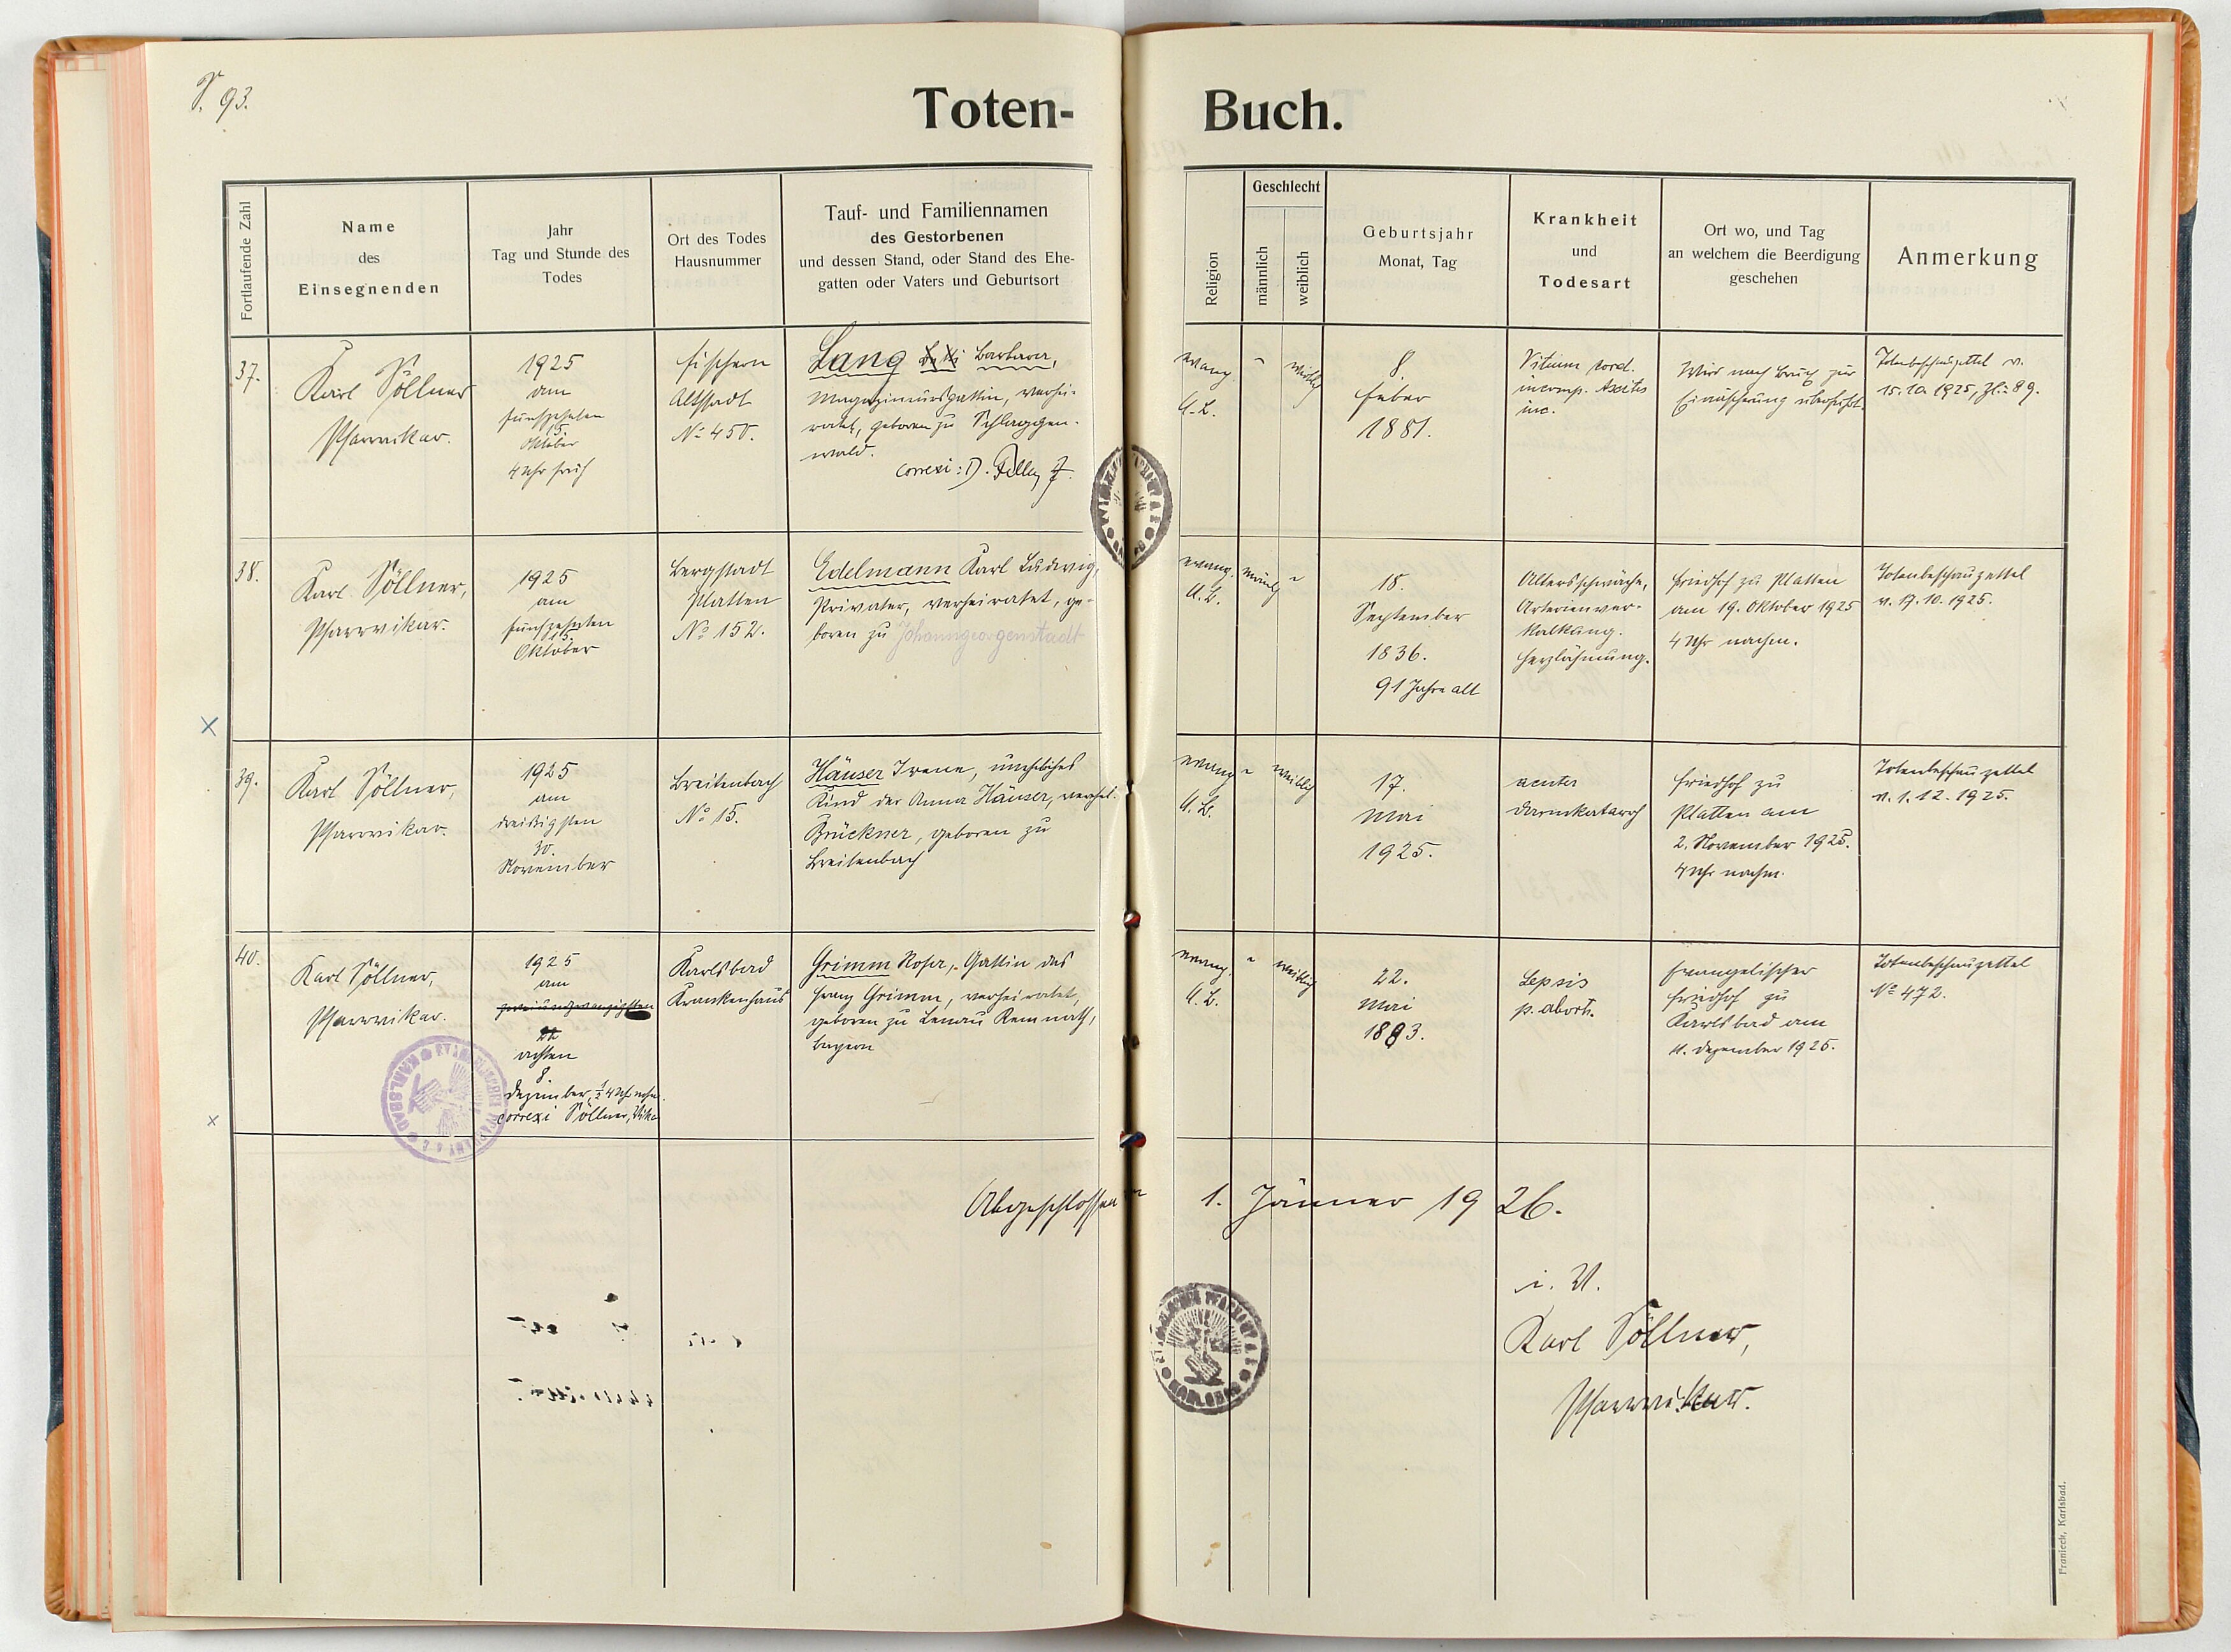 S. 93.
Toten-
Buch.
Fortlaufende Zahl
Name
des
Einsegnenden
Jahr
Tag und Stunde des
Todes
Ort des Todes
Hausnummer
Tauf- und Familiennamen
des Gestorbenen
und dessen Stand, oder Stand des Ehe-
gatten oder Vaters und Geburtsort
Religion
Geschlecht
männlich
weiblich
Geburtsjahr
Monat, Tag
Krankheit
und
Todesart
Ort wo, und Tag
an welchem die Beerdigung
geschehen
Anmerkung
37.
Karl Söllner
Pfarrvikar.
1925
am
fünfzehnten
15.
Oktober
4 Uhr früh
Fischern
Altstadt
No 450.
Lang Barbara,
Magazineursgattin, verhei-
ratet, geboren zu Schlaggen-
wald.
correxi:
evang.
A.B.
"
weiblich
8.
Feber
1881.
Vitium cord.
incomp. Ascites
inc.
Wird nach Brüx zur
Einäscherung überführt.
Totenbeschauzettel v.
15.10.1925, Zl.: 89.
38.
Karl Söllner,
Pfarrvikar.
1925
am
fünfzehnten
15.
Oktober
Bergstadt
Platten
No 152.
Edelmann Karl Ludwig,
Privater, verheiratet, ge-
boren zu Johanngeorgenstadt
evang.
A.B.
männl.
"
18.
September
1836.
91 Jahre alt
Altersschwäche,
Arterienver-
kalkung.
Herzlähmung.
Friedhof zu Platten
am 19. Oktober 1925
4 Uhr nachm.
Totenbeschauzettel
v. 17.10.1925.
39.
Karl Söllner,
Pfarrvikar.
1925
am
dreißigsten
30.
November
Breitenbach
No 15.
Häuser Irene, uneheliches
Kind der Anna Häuser, verehel.
Brückner, geboren zu
Breitenbach
evang.
A.B.
"
weiblich
17.
Mai
1925.
acuter
Darmkatarrh
Friedhof zu
Platten am
2. November 1925.
4 Uhr nachm.
Totenbeschauzettel
v. 1.12.1925.
40.
Karl Söllner,
Pfarrvikar.
1925
am
zweiundzwanzigsten
22
achten
8.
Dezember, ½ 4 Uhr nachm.
correxi Söllner, Vikar
Karlsbad
Krankenhaus
Grimm Rosa, Gattin des
Franz Grimm, verheiratet,
geboren zu Kemnath,
Bayern
evang.
A.B.
"
weiblich
22.
Mai
1883.
Sepsis
p. abort.
Evangelischer
Friedhof zu
Karlsbad am
11. Dezember 1925.
Totenbeschauzettel
No 472.
Abgeschlossen 1. Jänner 1926.
i. V.
Karl Söllner,
Pfarrvikar.
Franieck, Karlsbad.